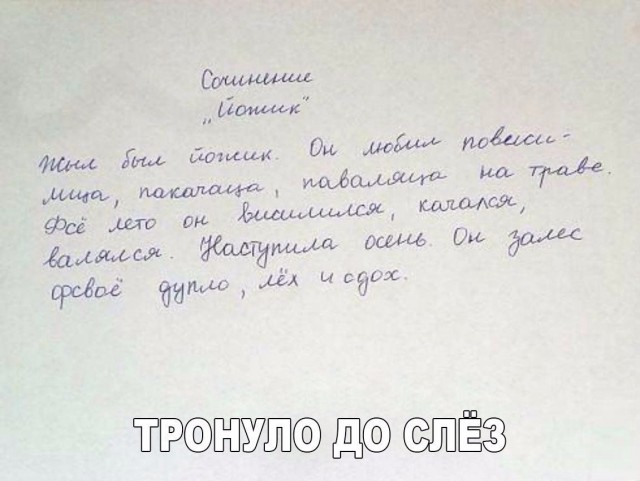 Сочинение
„Йожик“
Жыл был йожик. Он любил повесси-
лица, пакачаца, паваляца на траве.
Фсё лето он висилился, качался,
валялся. Наступила осень. Он залес
фсвоё дупло, лёх и сдох.
ТРОНУЛО ДО СЛЁЗ